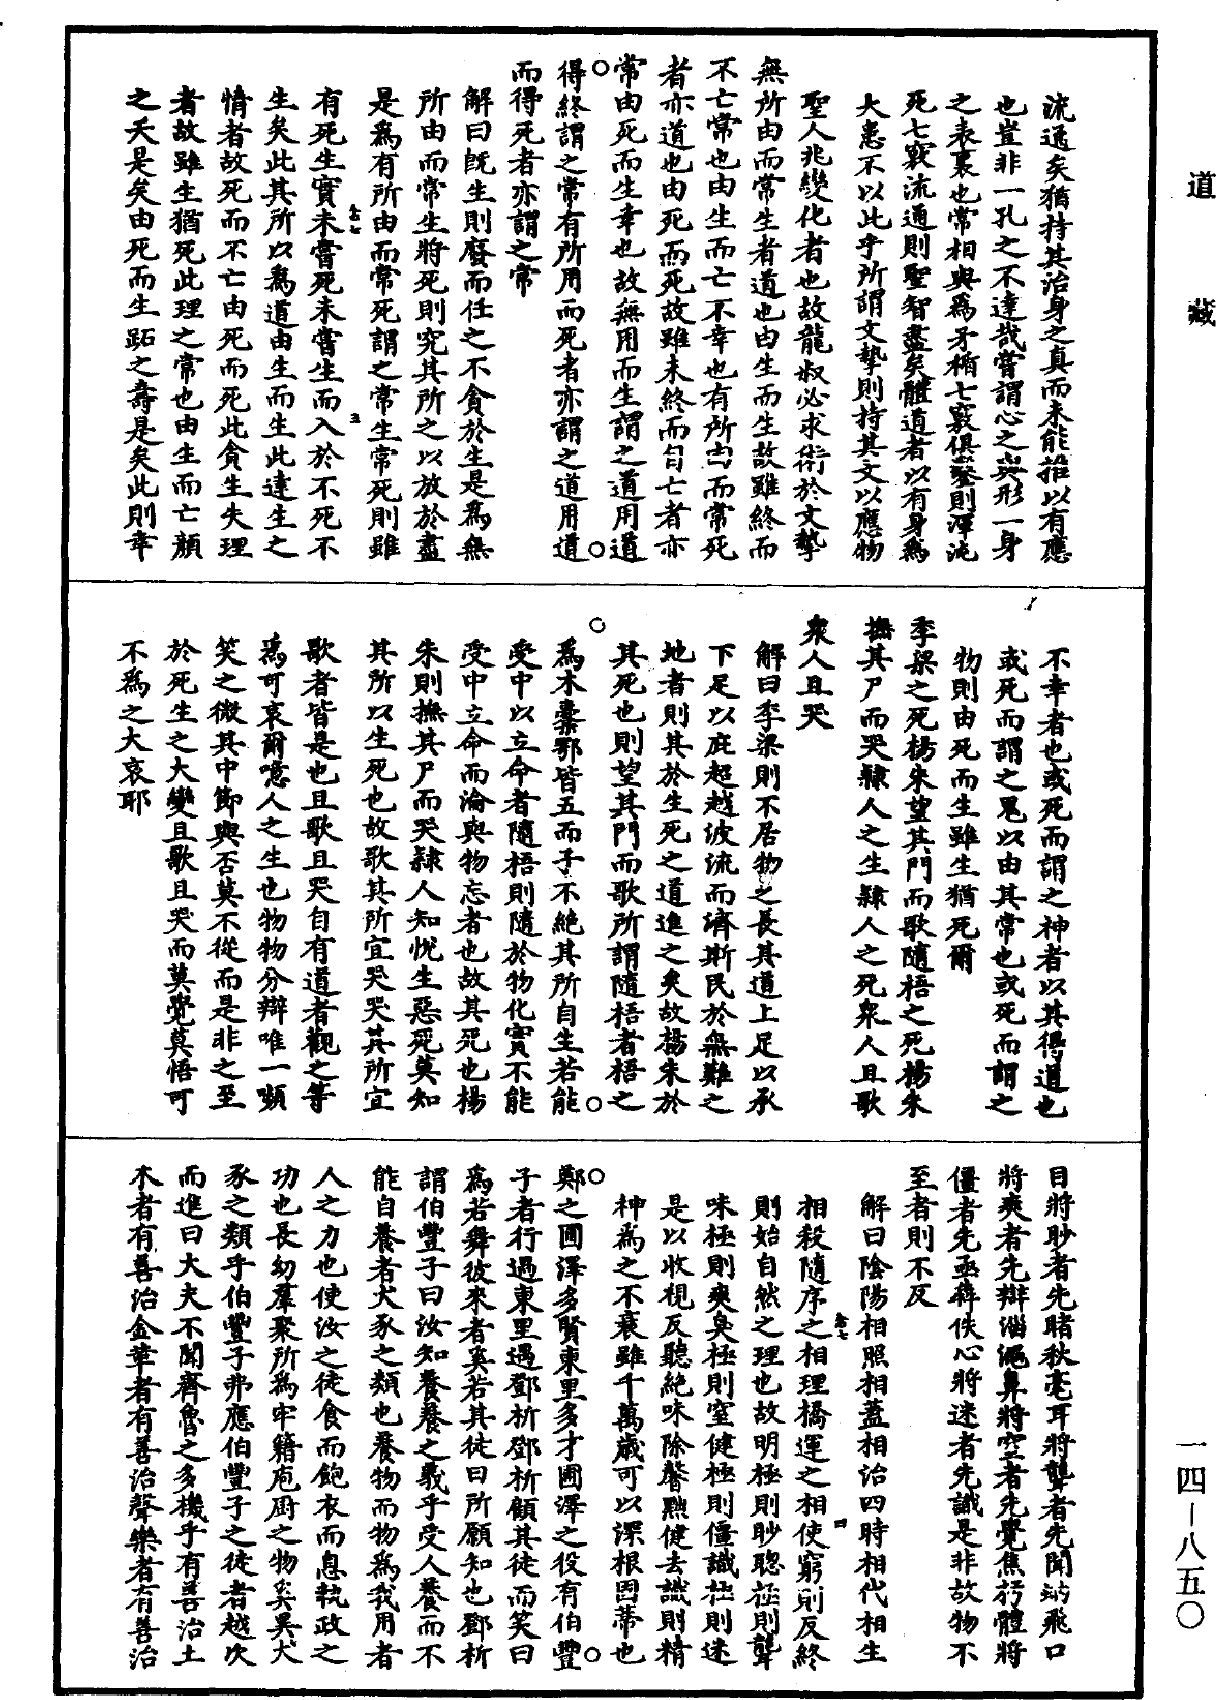 道藏
流通矣猶持其治身之真而未能推以有應
也豈非一孔之不達哉嘗謂心之與形一身
之表裏也常相與為矛楯七竅俱鑿則渾沌
死七竅流通則聖智盡矣體道者以有身為
大患不以此乎所謂文摯則持其文以應物
聖人兆變化者也故龍叔必求術於文摯
無所由而常生者道也由生而生故雖終而
不亡常也由生而亡不幸也有所由而常死
者亦道也由死而死故雖未終而自亡者亦
常由死而生幸也故無用而生謂之道用道
得終謂之常有所用而死者亦謂之道用道
而得死者亦謂之常
解曰既生則廢而任之不貪於生是為無
所由而常生將死則究其所之以放於盡
是為有所由而常死謂之常生常死則雖
有死生實未嘗死未嘗生而入於不死不
生矣此其所以為道由生而生此達生之
情者故死而不亡由死而死此貪生失理
者故雖生猶死此理之常也由生而亡顏
之夭是矣由死而生跖之壽是矣此則幸
不幸者也或死而謂之神者以其得道也
或死而謂之鬼以由其常也或死而謂之
物則由死而生雖生猶死爾
季梁之死楊朱望其門而歌隨梧之死楊朱
撫其尸而哭隸人之生隸人之死眾人且歌
眾人且哭
解曰季梁則不居物之長其道上足以承
下足以庇超越波流而濟斯民於無難之
地者則其於生死之道進之矣故楊朱於
其死也則望其門而歌所謂隨梧者梧之
為木櫜鄂皆五而子不絕其所自生若能
受中以立命者隨梧則隨於物化實不能
受中立命而淪與物忘者也故其死也楊
朱則撫其尸而哭隸人知悅生惡死莫知
其所以生死也故歌其所宜哭哭其所宜
歌者皆是也且歌且哭自有道者觀之等
為可哀爾噫人之生也物物分辯唯一嚬
笑之微其中節與否莫不從而是非之至
於死生之大變且歌且哭而莫覺莫悟可
不為之大哀耶
目將眇者先睹秋毫耳將聾者先聞蚋飛口
將爽者先辯淄澠鼻將窒者先覺焦朽體將
僵者先亟犇佚心將迷者先識是非故物不
至者則不反
解曰陰陽相照相蓋相治四時相代相生
相殺隨序之相理橋運之相使窮則反終
則始自然之理也故明極則眇聰極則聾
味極則爽臭極則窒健極則僵識極則迷
是以收視反聽絕味除馨黜健去識則精
神為之不衰雖千萬歲可以深根固蔕也
鄭之圃澤多賢東里多才圃澤之役有伯豐
子者行過東里遇鄧析鄧析顧其徒而笑曰
為若舞彼來者奚若其徒曰所願知也鄧析
謂伯豐子曰汝知養養之義乎受人養而不
能自養者犬豕之類也養物而物為我用者
人之力也使汝之徒食而飽衣而息執政之
功也長幼羣聚所為牢籍庖廚之物奚異犬
豕之類乎伯豐子弗應伯豐子之徒者越次
而進曰大夫不聞齊魯之多機乎有善治土
木者有善治金革者有善治聲樂者有善治
一四—八五〇